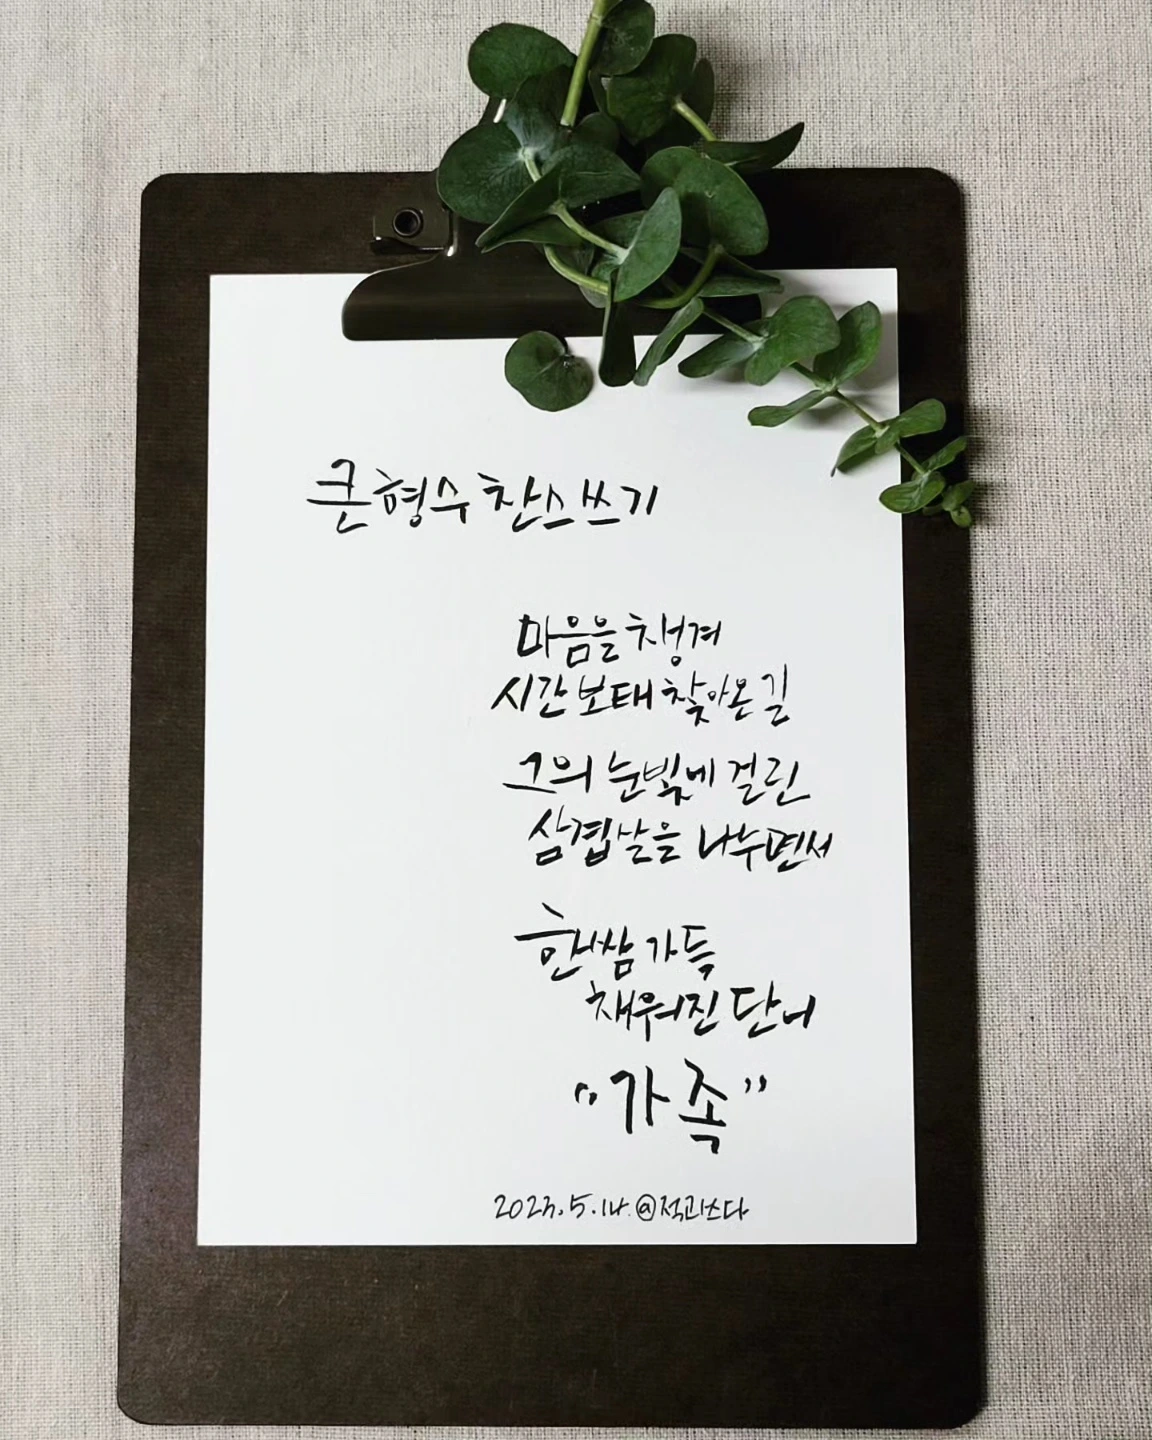 큰형수 찬스쓰기
마음을 챙겨
시간 보태 찾아온 길
그의 눈빛에 걸린
삼겹살을 나누면서
한쌈 가득
채워진 단어
"가족"
2023.5.14. @적고쓰다